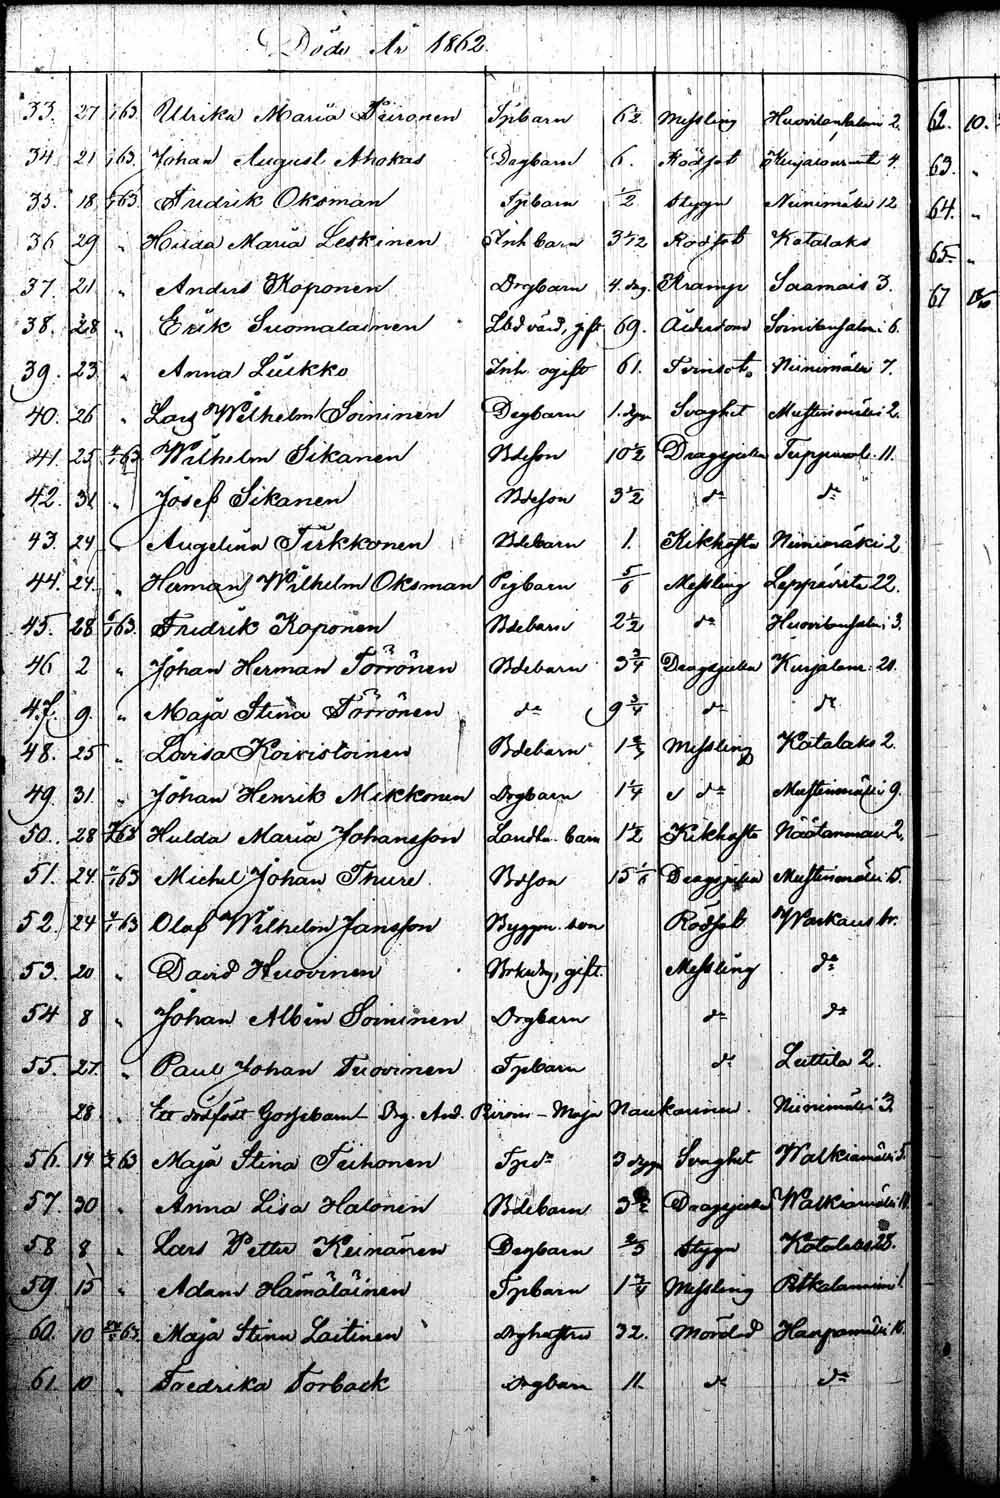 Döde År 1862.
33. 27 1/63 Ulrika Maria Piironen Tpbarn 6 1/2 Messling Huovilansalmi 2. 62. 10.
34. 21 1/63. Johan August Ahokas Dagbarn 6. Rödsot 4. 63. "
35. 18 63. Fredrik Oksman Tpbarn 1/2 Stygn Niinimäki 12 64. "
36 29 " Hilda Maria Leskinen Inh barn 3 1/12 Rödsot Katalaks 65. "
37. 21 " Anders Koponen Drgbarn 4. dag. Kramp Saamais 3. 67
38. 28 " Erik Suomalainen gift 69. Ålderdom Soinilansalmi 6.
39. 23 " Anna Luikko Inh. ogift 61. Tvinsot Niinimäki 7.
40. 26 " Lars Wilhelm Soininen Degbarn 1. dygn Svaghet Mustinmäki 2.
41. 25 63. Wilhelm Sikanen Bdeson 10 1/2 Dragsjuka 11.
42. 31 " Josef Sikanen Bdeson 3 1/2 do do
43. 24 " Augelina Tirkkonen Bdebarn 1. Kikhosta Niinimäki 2
44. 24. " Herman Wilhelm Oksman Pigbarn 5/6 Messling Leppävirta 22.
45. 28 63. Fredrik Koponen Bdebarn 2 1/2 do Huovilansalmi 3.
46 2 " Johan Herman Törrönen Bdebarn 3 3/4 Dragsjuka Kurjalanr. 20.
47. 9. " Maja Stina Törrönen do 9 3/4 do do
48. 25 " Lovisa Koivistoinen Bdebarn Messling Katalaks 2.
49. 31. " Johan Henrik Mikkonen Drgbarn 1 1/4 do Mustinmäki 9.
50. 28 63 Hulda Maria Johansson barn 1 1/2 Kikhosta Näätänmaa 2.
51. 24. 63 Michel Johan Thure Bdson 15 1/6 Dragsjuka Mustinmäki 5.
52. 24 63 Olof Wilhelm Jansson Byggm. son Rödsot Warkaus br.
53. 20 " David Huovinen gift. Messling do
54 8 " Johan Albin Soininen Drgbarn do do
55. 27. " Paul Johan Tuovinen Tpbarn do Luttila 2.
28. " Ett dödfödt Gossebarn Drg. And. Maja Naukarinen. Niinimäki 3.
56. 14 63 Maja Stina Tiihonen Tpdr 3 dygn Svaghet Walkiamäki 5.
57. 30 " Anna Lisa Halonen Bdebarn Dragsjuka Walkiamäki
58 8 " Lars Petter Keinänen Degbarn 2/3 Stygn Katalaks 28.
59. 15 " Adam Hämäläinen Tpbarn 1 3/4 Messling Pitkälanniemi 1
60. 10 63. Maja Stina Laitinen drghustru 32. Mördad Haapamäki 16.
61. 10 " Fredrika Torback Drgbarn 11. do do